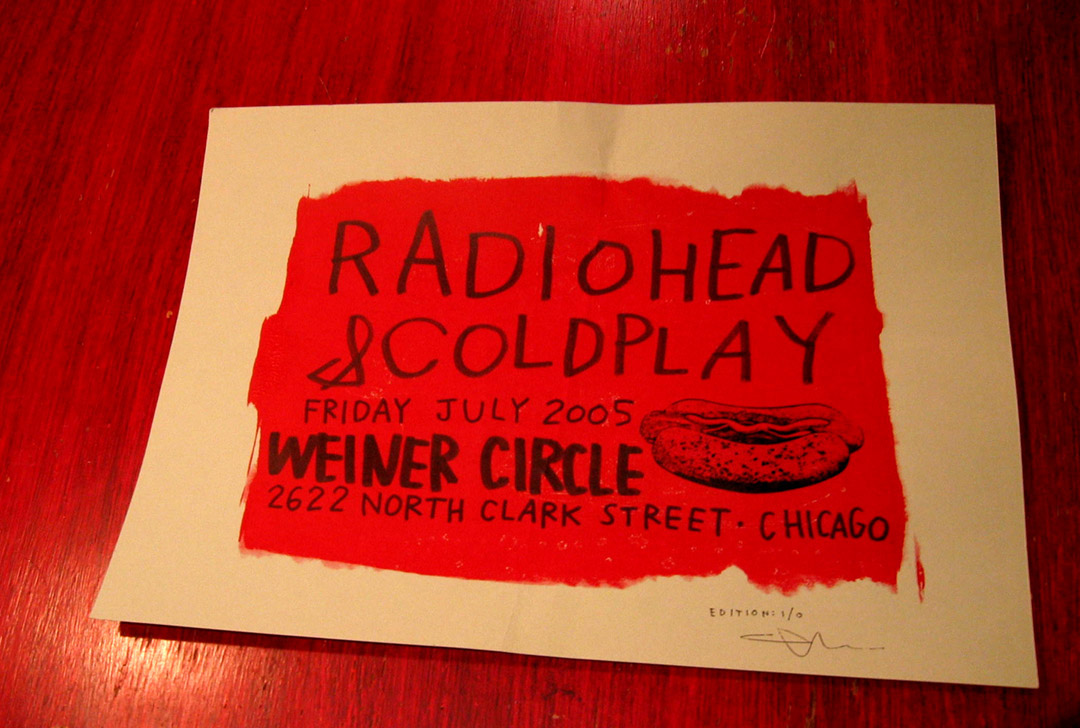 RADIOHEAD
& COLDPLAY
FRIDAY JULY 2005
WEINER CIRCLE
2622 NORTH CLARK STREET · CHICAGO
EDITION: 1/0